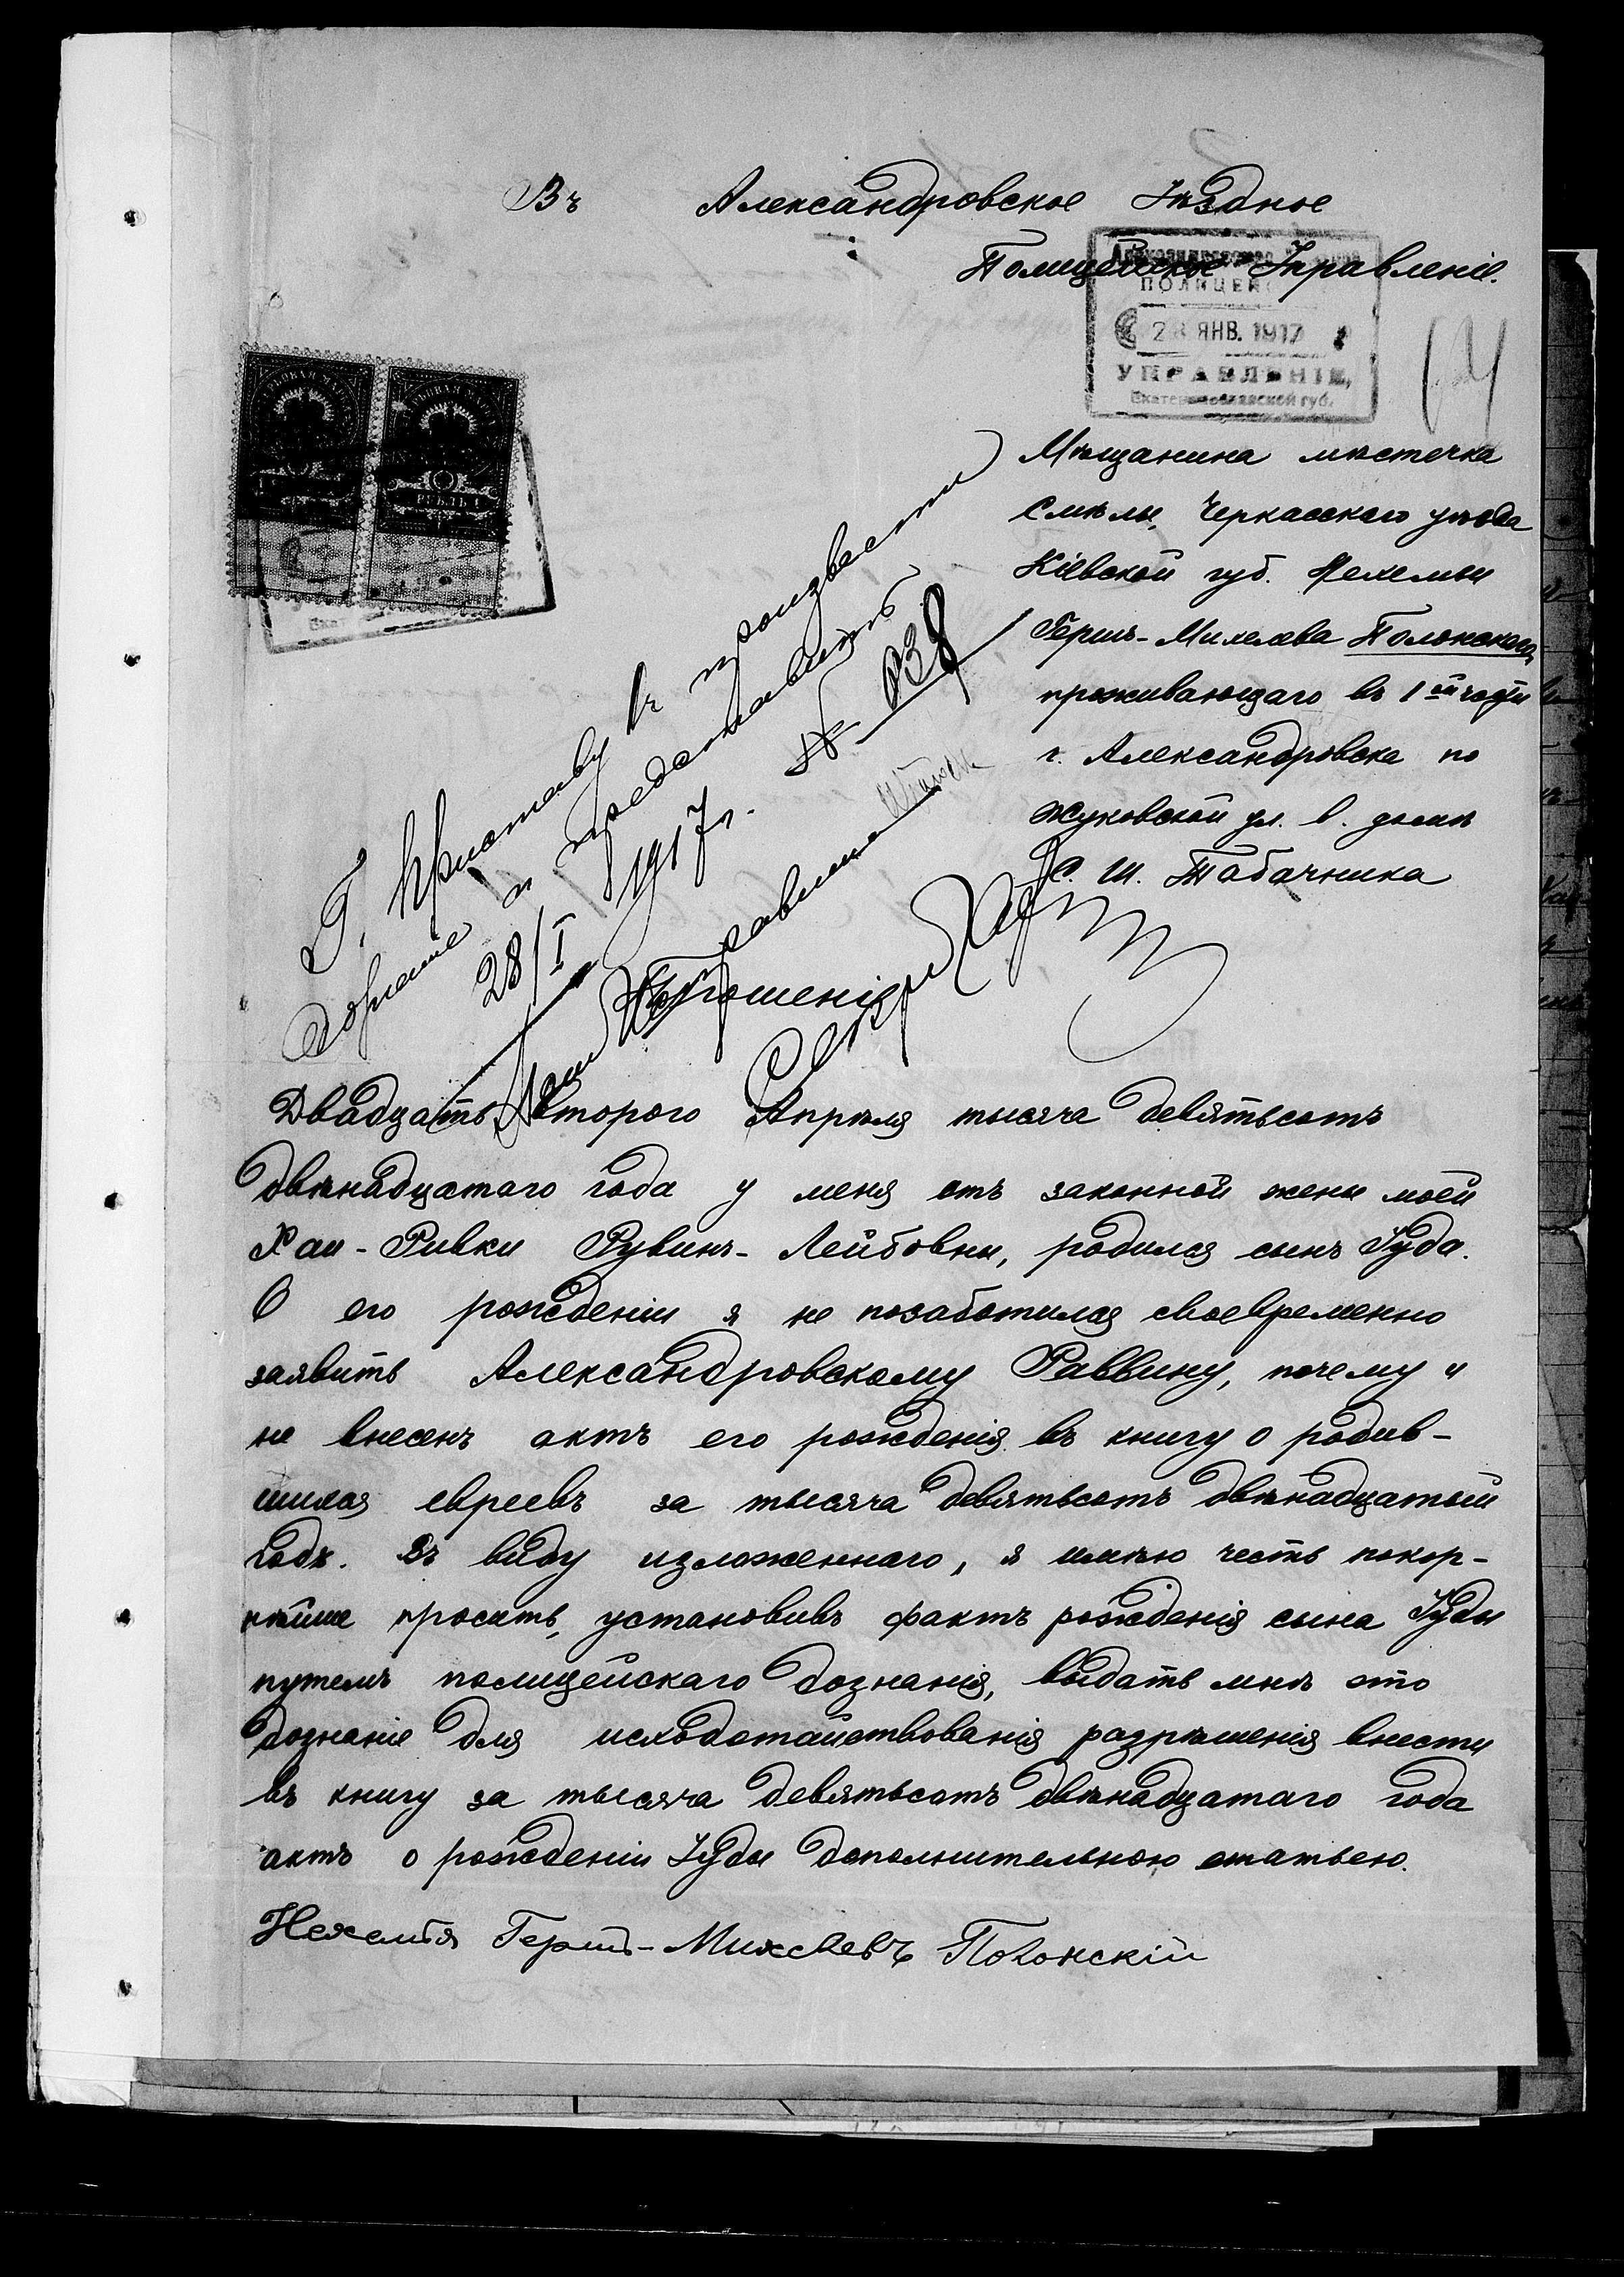 Въ Александровское Уѣздное
Полицейское Управленіе.
ПОЛИЦЕЙ
28 ЯНВ. 1917
УПРАВЛЕНІЕ,
Екатеринославской губ.
Мѣщанина мѣстечка
Смѣлы, Черкасскаго уѣзда
Кіевской губ. Нехемьи
Гершъ-Михелева Полонскаго,
проживающаго въ 1ой части
г. Александровска по
Жуковской ул. в. домѣ
С. Ш. Табачника
Г. Приставу 1 ч произвести
дознаніе и представить
28/I 1917 г. № 038
Исправника
Секретарь
Прошеніе
Двадцать второго Апрѣля тысяча девятьсотъ
двѣнадцатаго года у меня отъ законной жены моей
Хаи-Ривки Рувинъ-Лейбовны, родился сынъ Іуда.
О его рожденіи я не позаботился своевременно
заявить Александровскому Раввину, почему и
не внесенъ актъ его рожденія въ книгу о родив-
шихся евреевъ за тысяча девятьсотъ двѣнадцатый
годъ. Въ виду изложеннаго, я имѣю честь покор-
нѣйше просить, установивъ фактъ рожденія сына Іуды
путемъ полицейскаго дознанія, выдать мнѣ это
дознаніе для исходотайствованія разрѣшенія внести
въ книгу за тысяча девятьсотъ двѣнадцатаго года
актъ о рожденіи Іуды дополнительною статьею.
Нехемья Гершъ-Михелевъ Полонскій